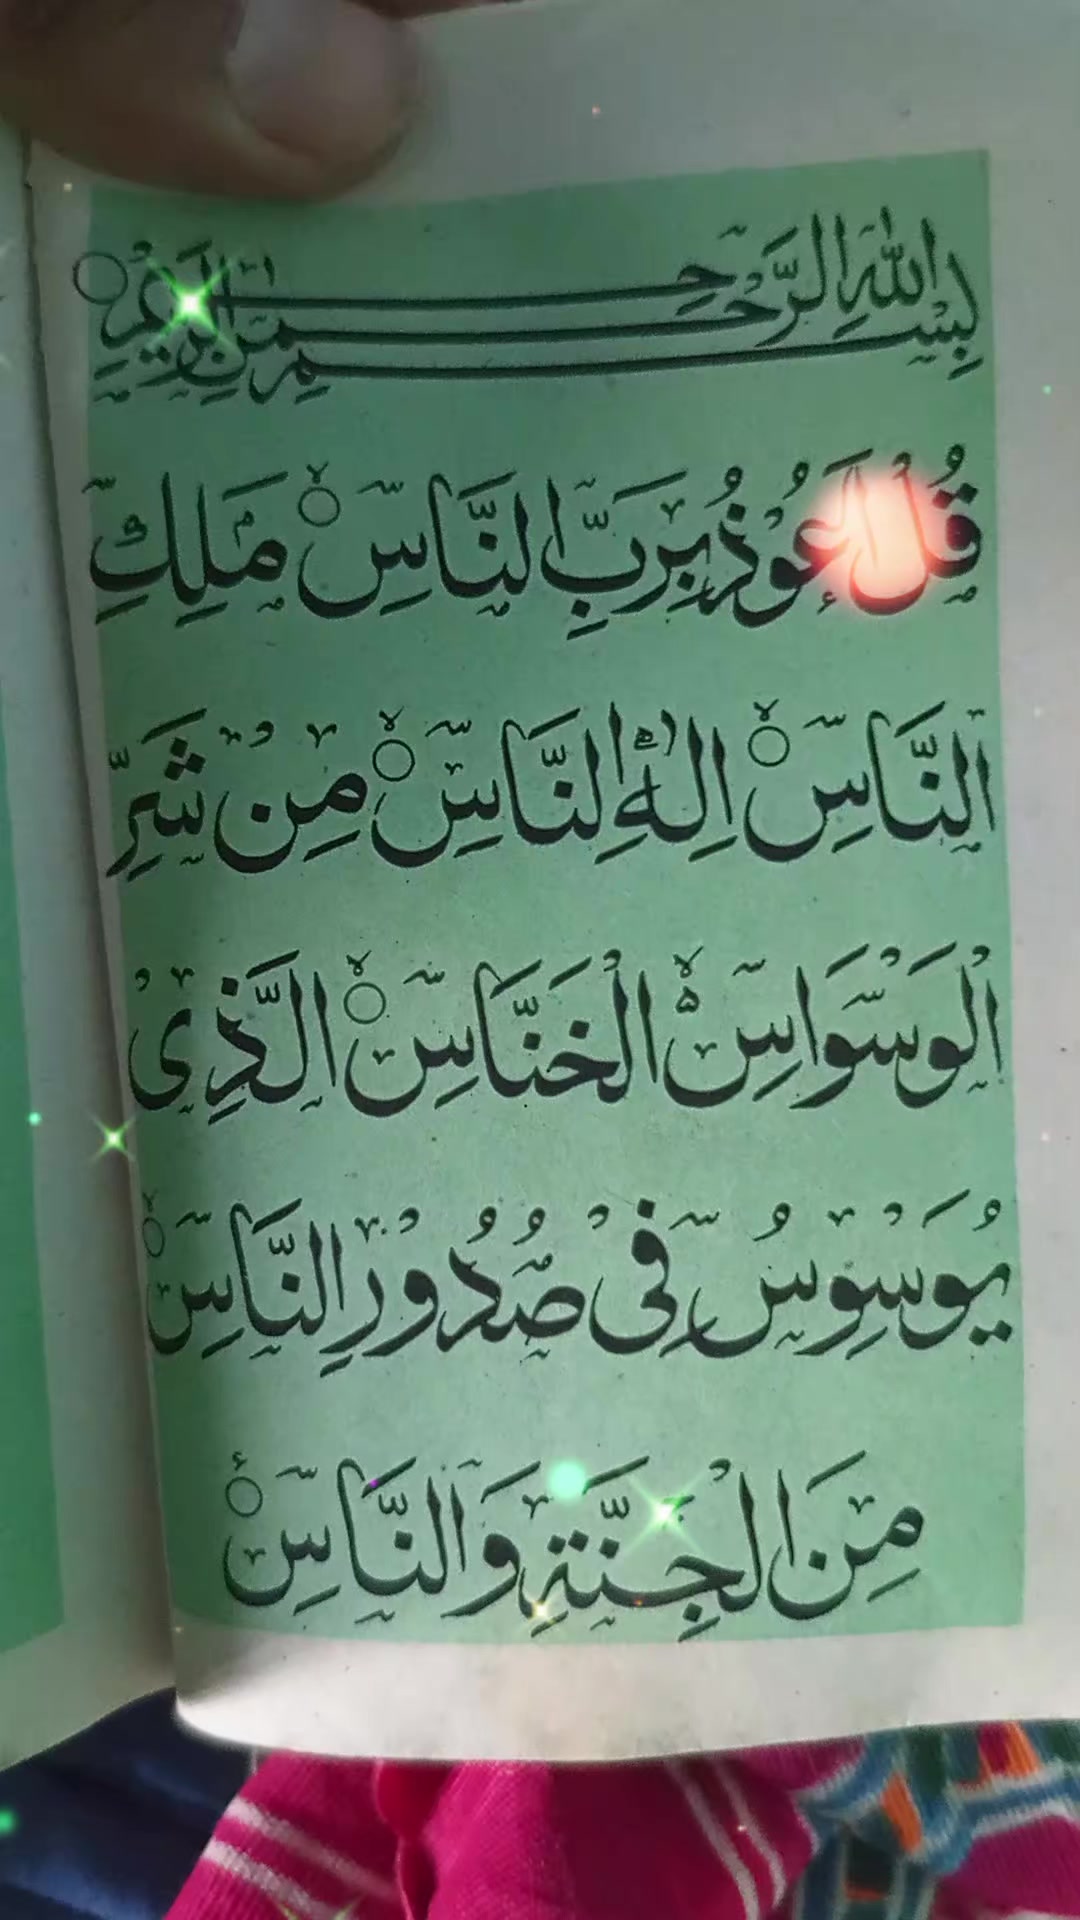 بِسْمِ اللهِ الرَّحْمٰنِ الرَّحِيْمِ
قُلْ اَعُوْذُ بِرَبِّ النَّاسِۙ مَلِكِ
النَّاسِۙ اِلٰهِ النَّاسِۙ مِنْ شَرِّ
الْوَسْوَاسِ ۙ۬ الْخَنَّاسِۙ الَّذِیْ
يُوَسْوِسُ فِیْ صُدُوْرِ النَّاسِۙ
مِنَ الْجِنَّةِ وَالنَّاسِ